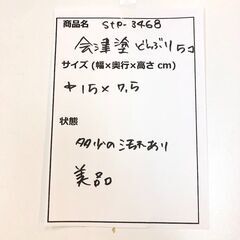 商品名 StP-3468
会津塗どんぶり5コ
サイズ (幅×奥行×高さ cm)
φ15×7,5
状態
多少の汚れあり
美品